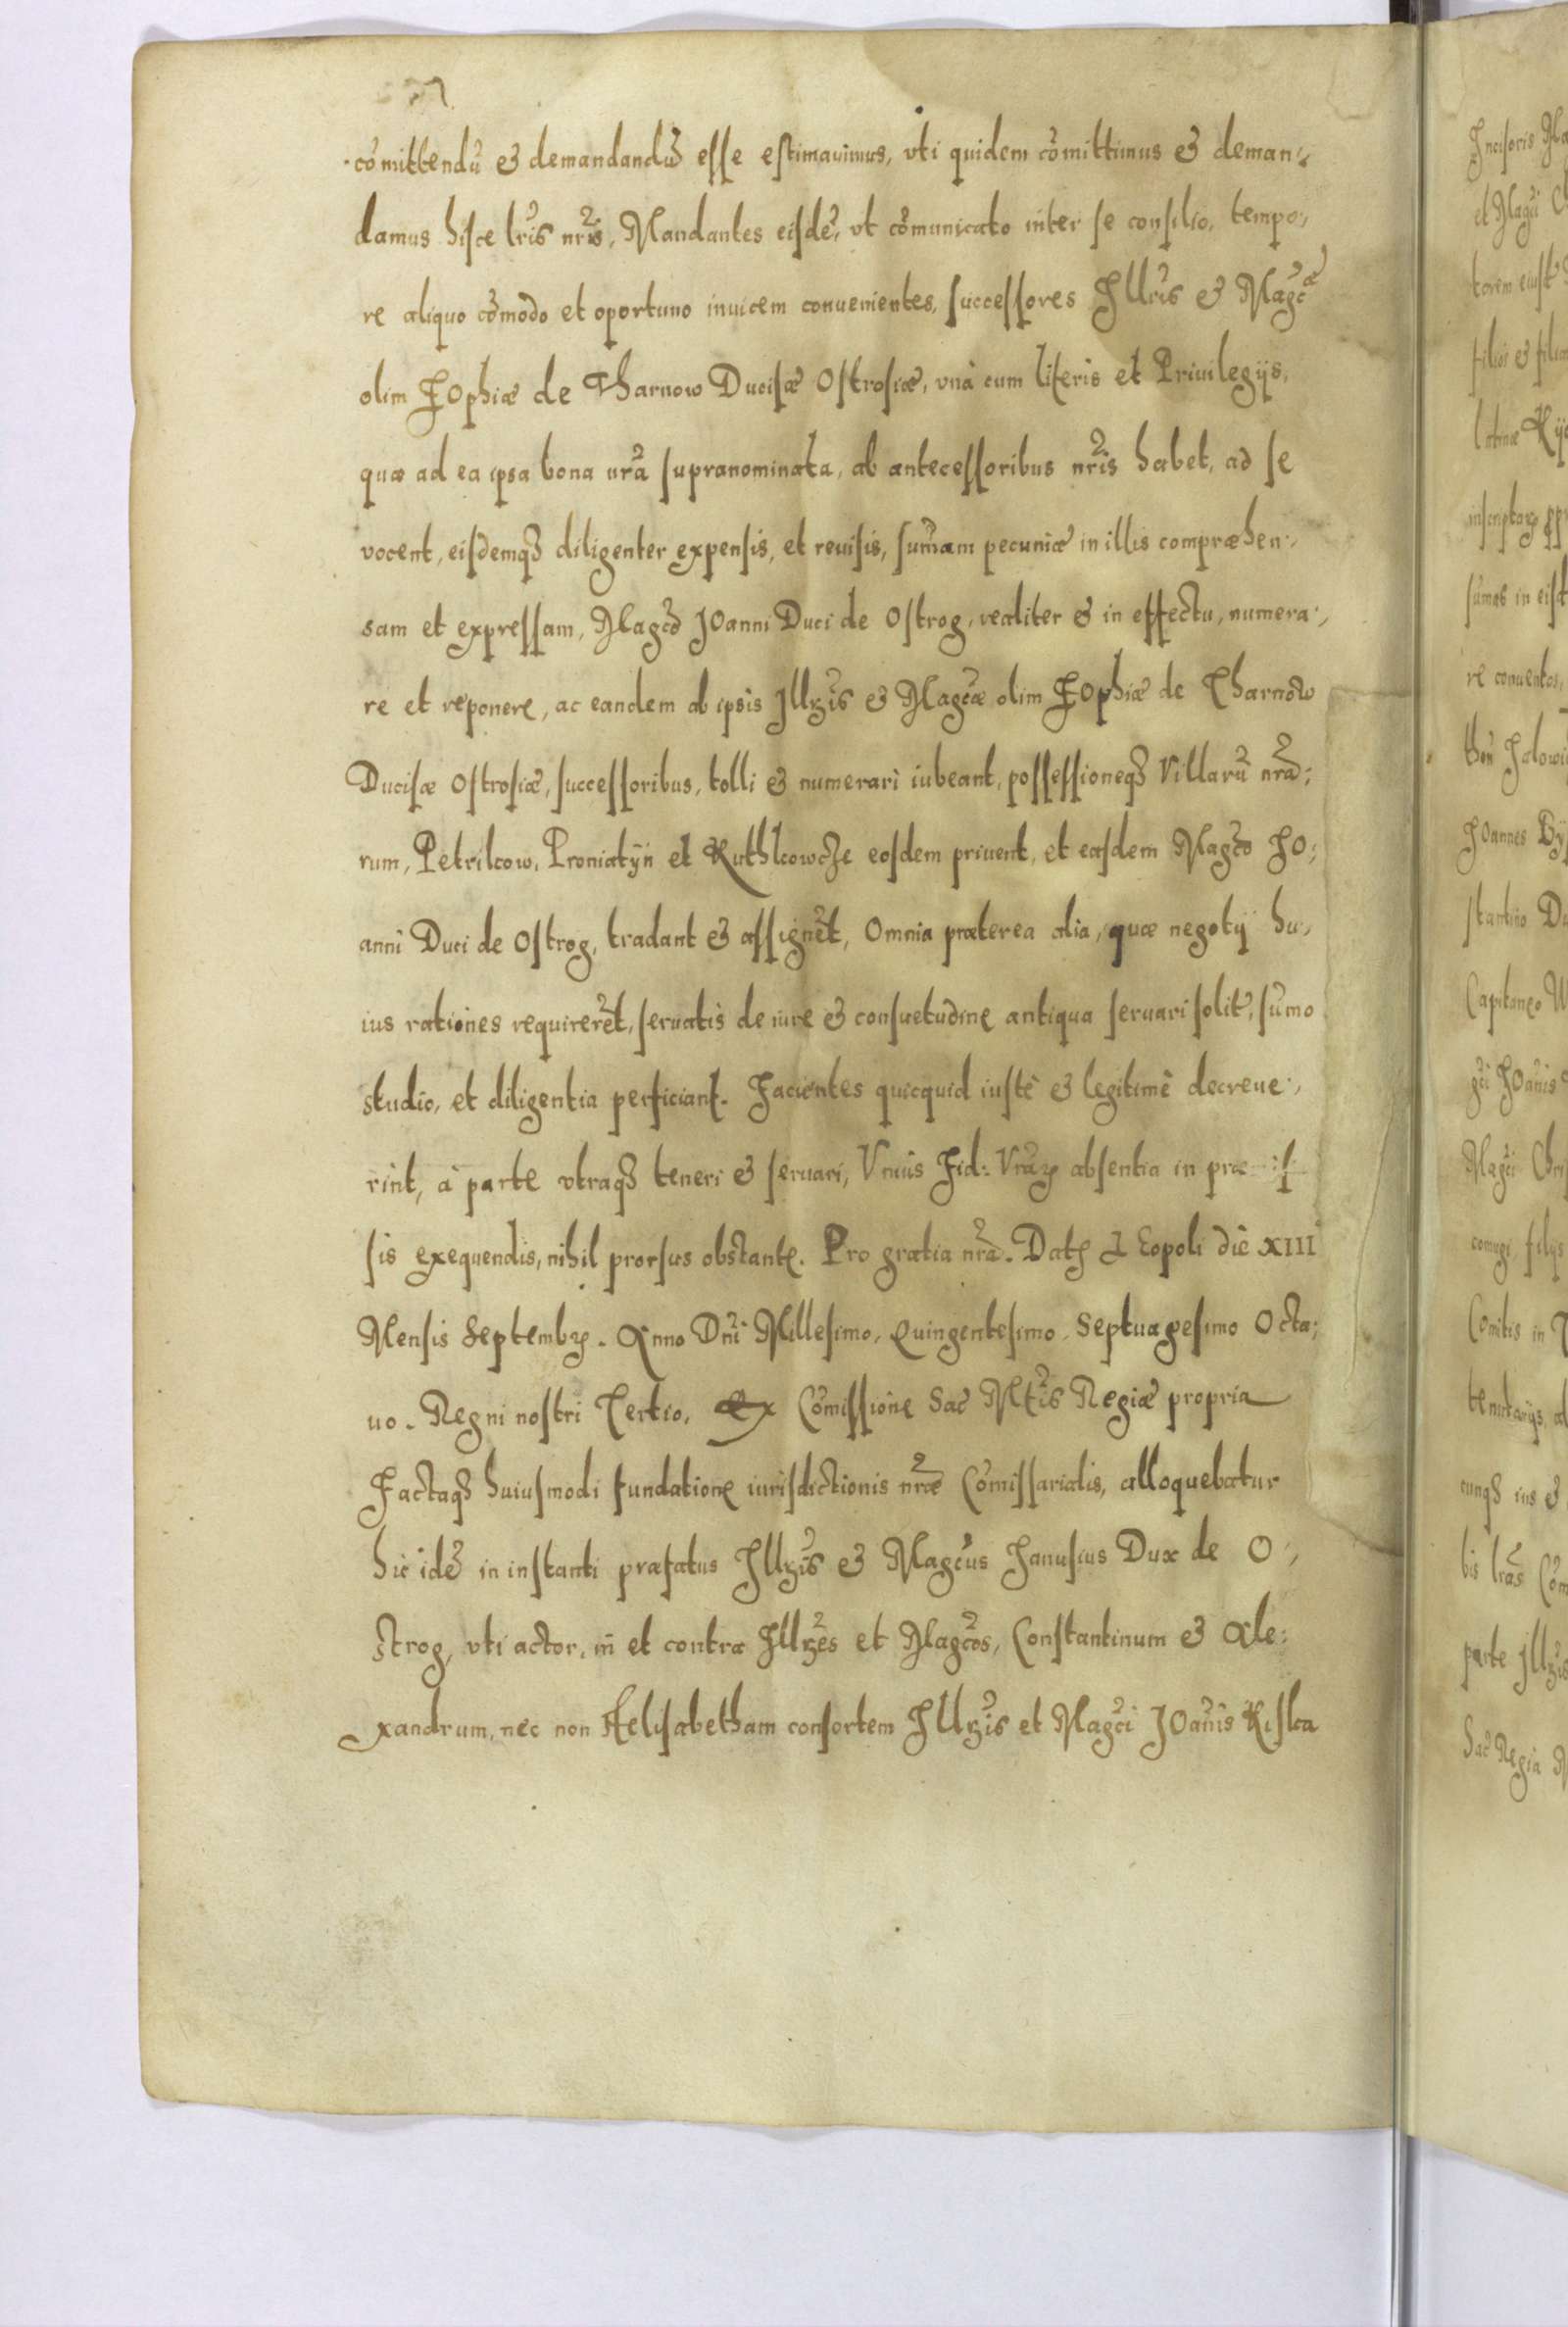 com̃ittendũ & demandandũ esse estimavimus, vti quidem com̃ittimus & deman-
damus hisce lr̃is nr̃is, Mandantes eisdẽ, vt com̃unicato inter se consilio, tempo-
re aliquo com̃odo et oportuno inuicem conuenientes, successores Illr̃is & Magcæ
olim Sophiæ de Tharnow Ducisæ Ostrosiæ, vnà cum literis et Priuilegijs,
quæ ad ea ipsa bona nr̃a supranominata, ab antecessoribus nr̃is habet, ad se
vocent, eisdemqȝ diligenter expensis, et reuisis, sum̃am pecuniæ in illis compræhen-
sam et expressam, Magco Joanni Duci de Ostrog, realiter & in effectu, numera-
re et reponere, ac eandem ab ipsis Illr̃is & Magcæ olim Sophiæ de Tharnow
Ducisæ Ostrosiæ, successoribus, tolli & numerari iubeant, possessioneqȝ Villarũ nr̃a:
rum, Petrilcow, Proniatyn et Ruthkowcze eosdem priuent, et easdem Magco Jo:
anni Duci de Ostrog, tradant & assignẽt, Omnia præterea alia, quæ negotij hu-
ius rationes requirerẽt, seruatis de iure & consuetudine antiqua seruari solit̃, sũmo
studio, et diligentia perficiant. Facientes quicquid iustè & legitimè decreue-
rint, à parte vtraqȝ teneri & seruari, Vnius Fid: Vr̃aꝝ absentia in præ
sis exequendis, nihil prorsus obstante. Pro gratia nr̃a. Datꝭ Leopoli die XIII
Mensis Septembꝝ. Anno Dñi Millesimo, Quingentesimo, Septuagesimo Octa:
uo. Regni nostri Tertio. Ex Com̃issione Sac̃ Mt̃is Regiæ propria
Factaqȝ huiusmodi fundatione iurisdictionis nr̃æ Com̃issarialis, alloquebatur
hic idẽ in instanti præfatus Illr̃is & Magcus Janusius Dux de O-
strog, vti actor, in et contra Illr̃es et Magcos, Constantinum & Ale:
xandrum, nec non Helisabetham consortem Illr̃is et Magci Joañis Kiska